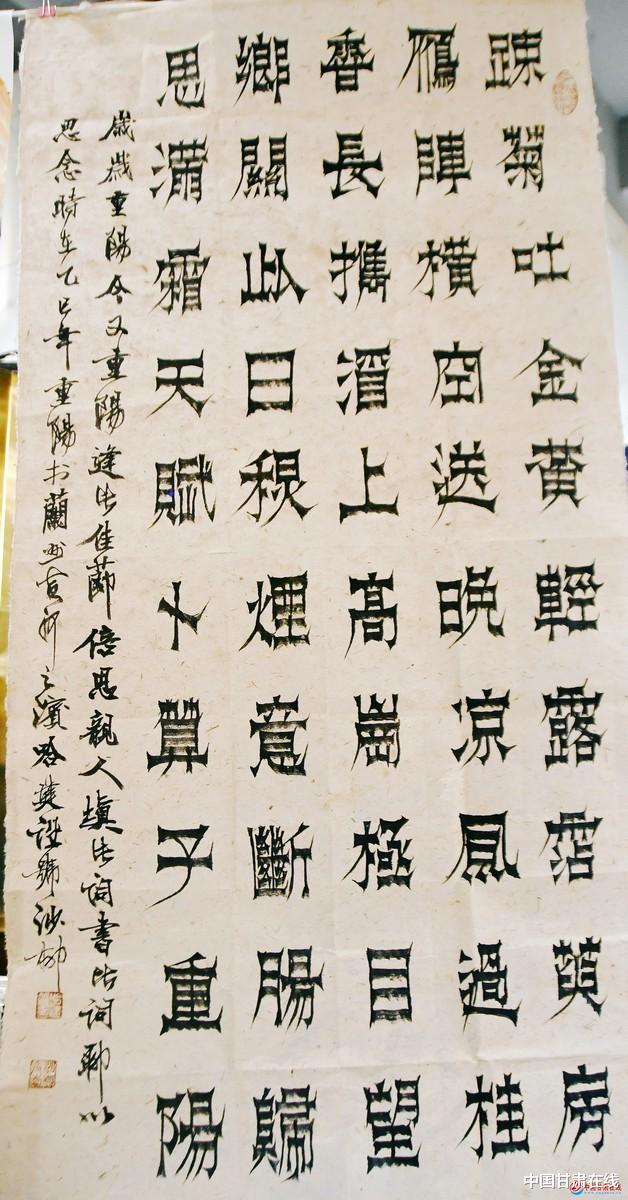 疎菊吐金黄輕露霑萸房
鴈陣橫空送晩凉風過桂
香長携酒上高崗極目望
鄉關此日煙意斷腸歸
思滿霜天賦卜算子重陽
歲歲重陽今又重陽逢此佳節倍思親人填此詞書此詞聊以
思念時在乙巳年重陽於蘭州黄河之濱號沙柳
中国甘肃在线
中国甘肃在线